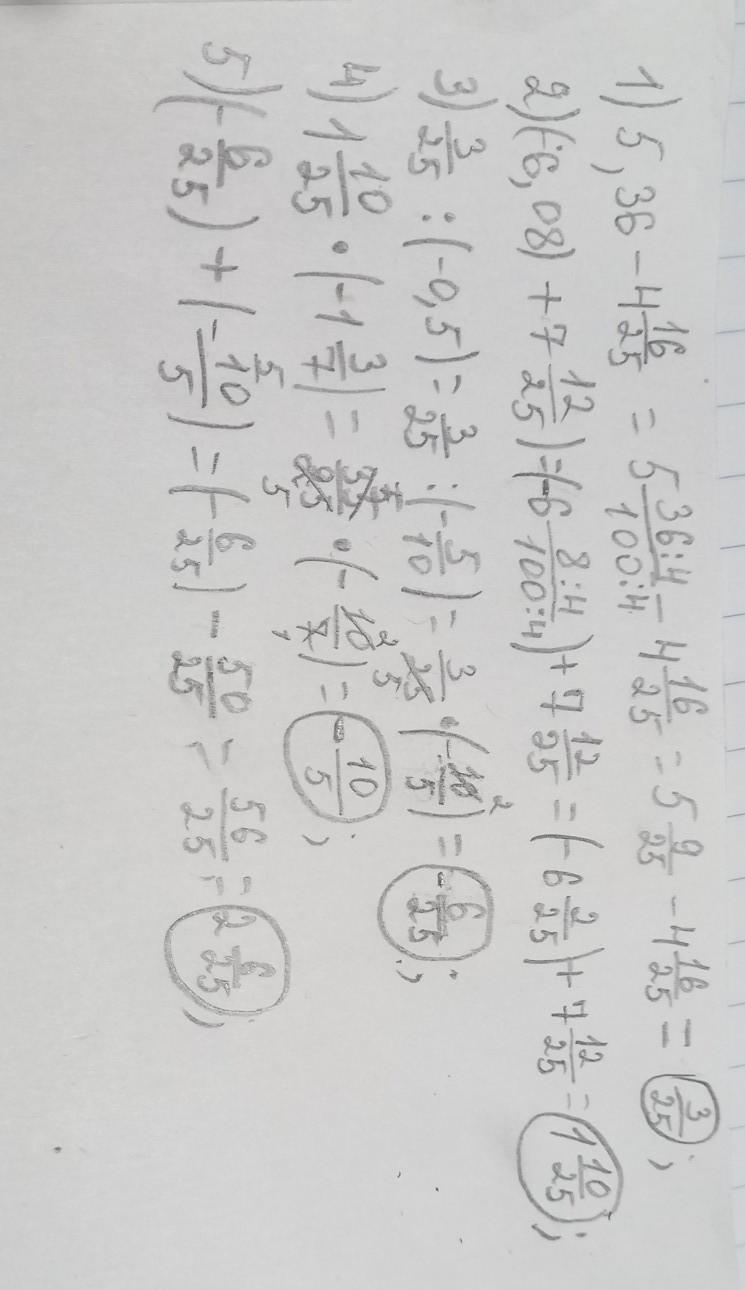 1) 5,36 - 4 16/25 = 5 36:4/100:4 - 4 16/25 = 5 9/25 - 4 16/25 = 3/25;
2) (-6,08) + 7 12/25) = (-6 8:4/100:4) + 7 12/25 = (-6 2/25) + 7 12/25 = 1 10/25;
3) 3/25 : (-0,5) = 3/25 : (-5/10) = 3/25 · (-10/5) = -6/25;
4) 1 10/25 · (-1 3/7) = 35/25 · (-10/7) = -10/5;
5) (-6/25) + (-10/5) = (-6/25) - 50/25 = 56/25 = 2 6/25;